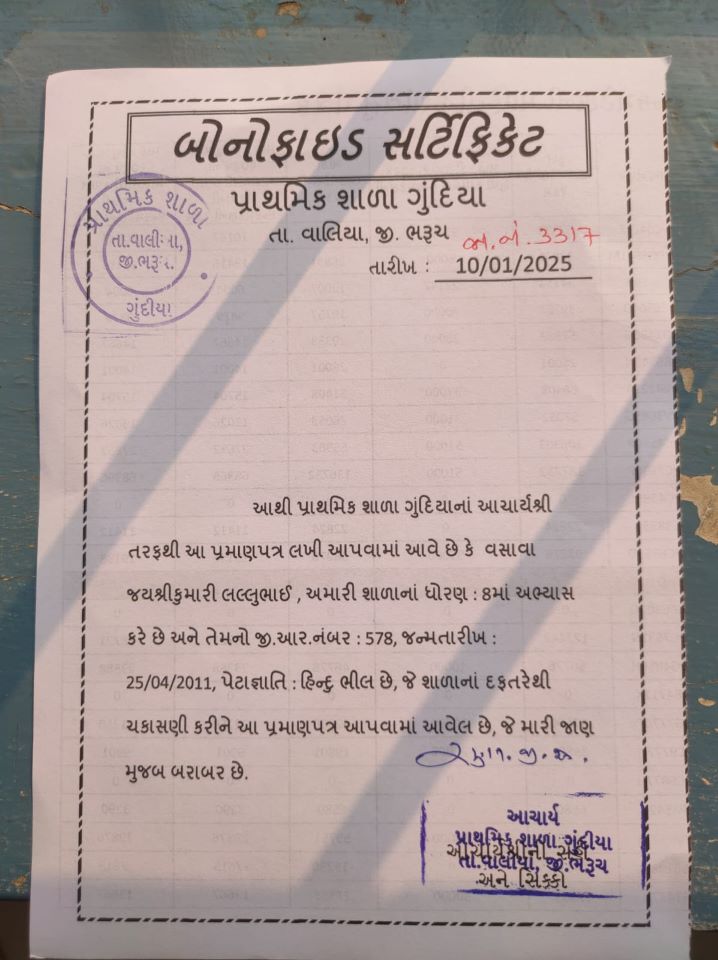 બોનોફાઇડ સર્ટિફિકેટ
પ્રાથમિક શાળા ગુંદિયા
તા. વાલિયા, જી. ભરૂચ
જા.નં. 3317
તારીખ : 10/01/2025
પ્રાથમિક શાળા
તા.વાલીયા,
જી.ભરૂચ.
ગુંદીયા
આથી પ્રાથમિક શાળા ગુંદિયાનાં આચાર્યશ્રી
તરફથી આ પ્રમાણપત્ર લખી આપવામાં આવે છે કે વસાવા
જયશ્રીકુમારી લલ્લુભાઈ , અમારી શાળાનાં ધોરણ : 8માં અભ્યાસ
કરે છે અને તેમનો જી.આર.નંબર : 578, જન્મતારીખ :
25/04/2011, પેટાજ્ઞાતિ : હિન્દુ ભીલ છે, જે શાળાનાં દફતરેથી
ચકાસણી કરીને આ પ્રમાણપત્ર આપવામાં આવેલ છે, જે મારી જાણ
મુજબ બરાબર છે.
આચાર્ય
પ્રાથમિક શાળા ગુંદીયા
આચાર્યશ્રીની સહી
તા.વાલીયા, જી.ભરૂચ
અને સિક્કો